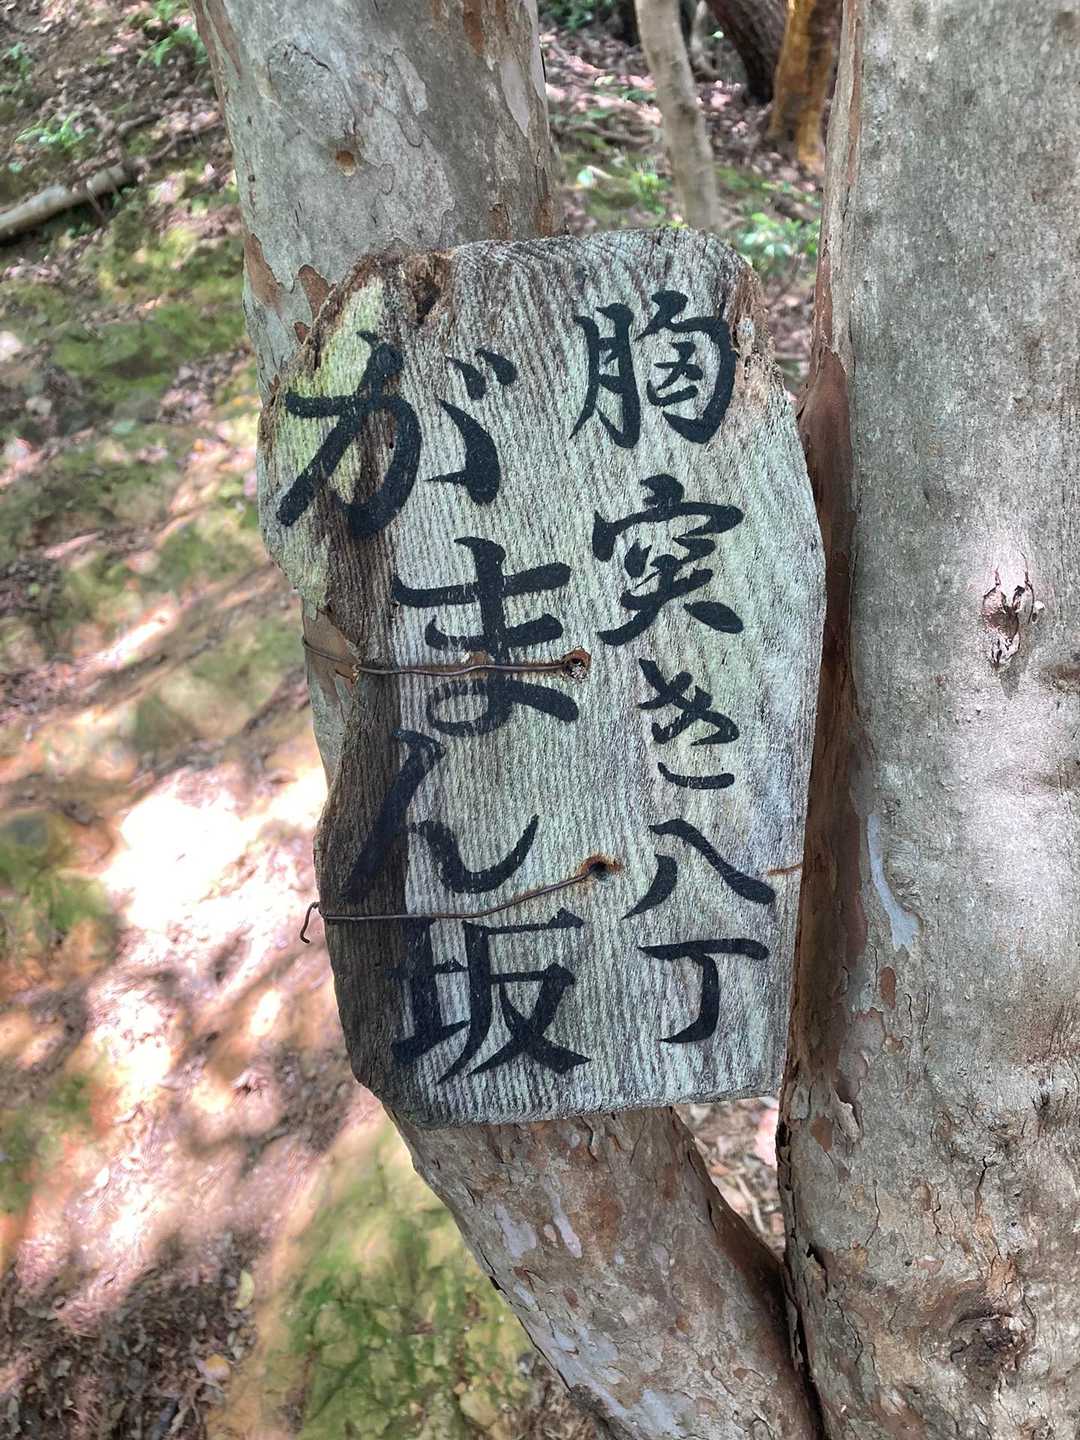 胸突き八丁
がまん坂